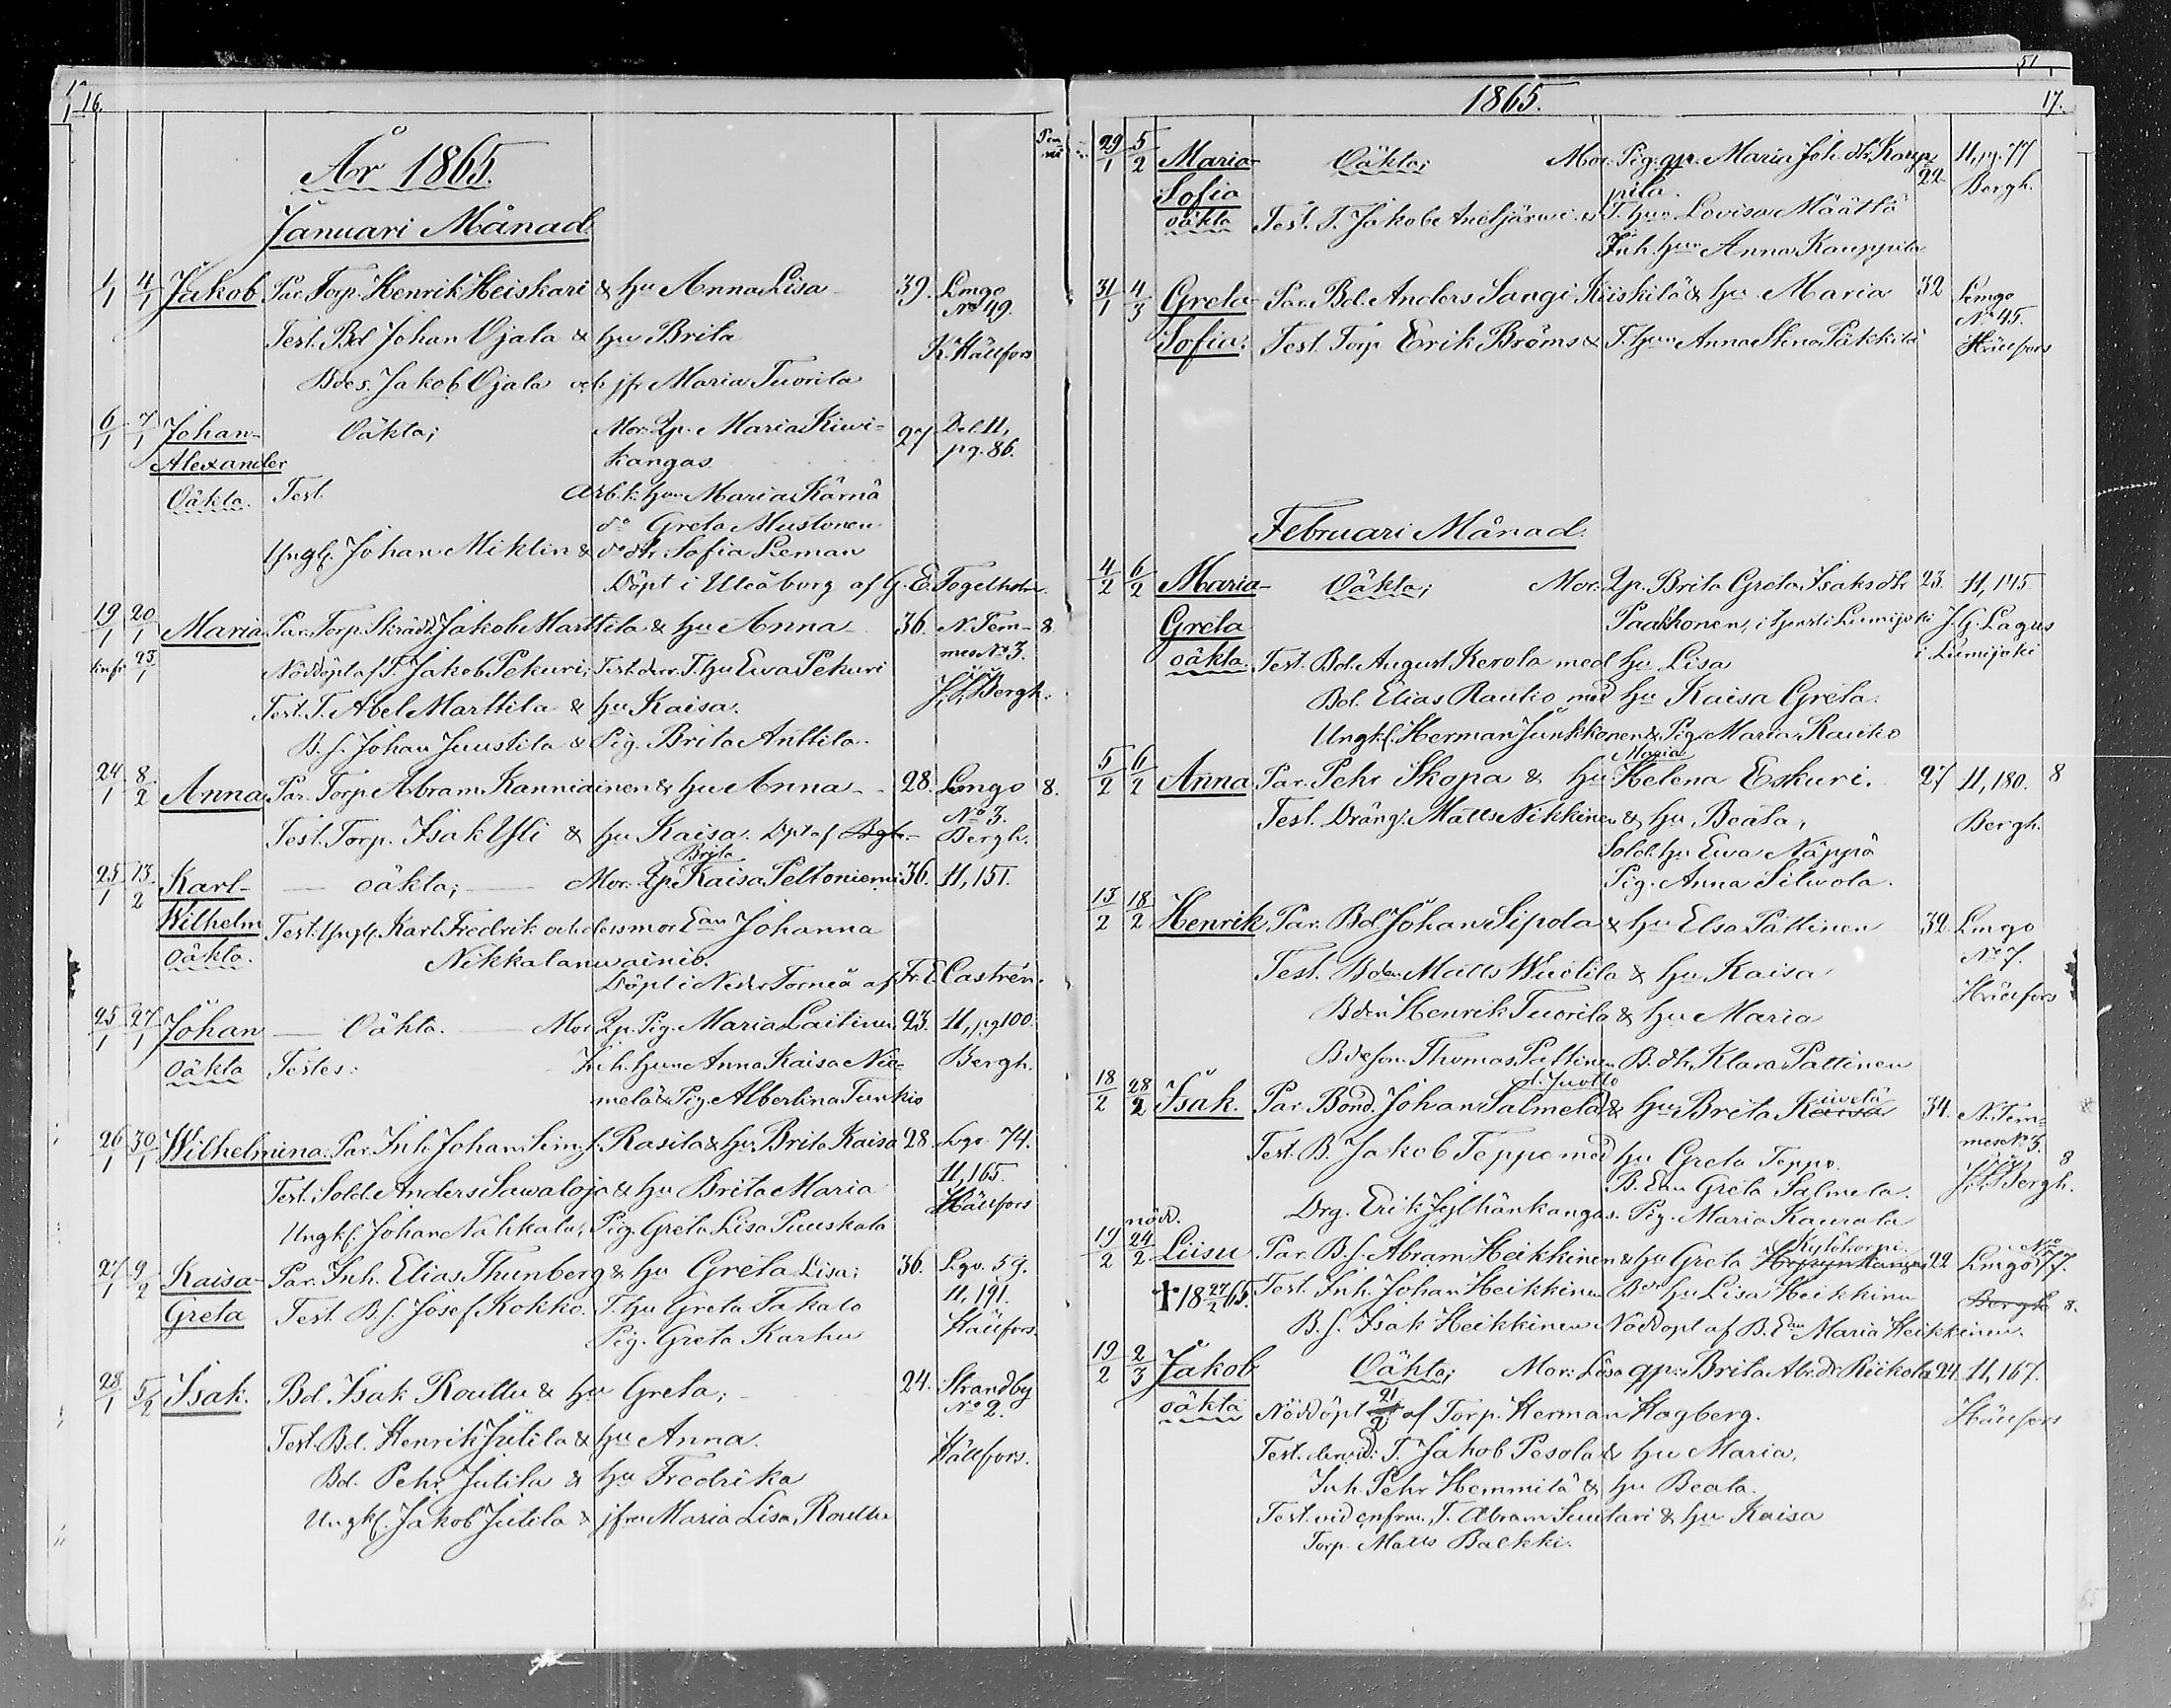 16.
År 1865.
Januari Månad.
1/1 4/1 Jakob Par. Torp. Henrik Heiskari & hu Anna Lisa 39. Lmgo
No 49.
Test. Bd Johan Ojala & hu Brita
K. Hällfors
Bdes. Jakob Ojala och jfr Maria Tuorila
6/1 7/1 Johan- Oäkta; Mor. Lp. Maria Kiwi- 27 Del. 11,
Alexander kangas pg. 86.
Oäkta. Test. Arb.k. hun Maria Kärnä
do Greta Mustonen
Ungk. Johan Miklin & do dtr. Sofia Leman
Döpt i Uleåborg af G. E. Fogelholm.
19/1 20/1 Maria Par. Torp. Skrädd. Jakob Marttila & hu Anna 36. N. Tem- 8.
mes No 3.
23/1 Nöddöpt af T. Jakob Pekuri; Test. derv. T. hu Ewa Pekuri
Test. T. Abel Marttila & hu Kaisa. Bergh.
B.s. Johan Juustila & Pig. Brita Anttila.
24/1 8/2 Anna Par. Torp. Abram Kanniainen & hu Anna 28. Lmgo 8.
No 3.
Test. Torp. Isak Yli & hu Kaisa. Dpt af Bgh. Bergh.
Brita
25/1 13/2 Karl- oäkta; Mor. Lp. Kaisa Peltoniemi 36. 11, 151.
Wilhelm Test. Ungk. Karl Fredrik och dess mor Ean Johanna
oäkta. Nikkalanwainio.
Döpt i Neder Torneå af Fr. E. Castrén.
25/1 27/1 Johan Oäkta. Mor Lp. Pig. Maria Laitinen 23. 11, pg 100
oäkta Testes: Inh. hun Anna Kaisa Nie- Bergh.
melä & Pig. Albertina Tunkio
26/1 30/1 Wilhelmina. Par. Inh. Johan Rasila & hu Brita Kaisa 28. Lgo. 74.
11, 165.
Test. Sold. Anders Sawaloja & hu Brita Maria
Hällfors
Ungk. Johan Nahkala; Pig. Greta Lisa Puuskala
27/1 9/2 Kaisa- Par. Inh. Elias Thunberg & hu Greta Lisa; 36. Lgo. 59.
11, 191.
Greta Test. B.s. Josef Kokko. T. hu Greta Takalo
Hällfors.
Pig. Greta Karhu
28/1 5/2 Isak. Bd. Isak Routtu & hu Greta; 24. Strandby
No 2.
Test. Bd. Henrik Jutila & hu Anna.
Hällfors.
Bd. Pehr Jutila & hu Fredrika
Ungk. Jakob Jutila & jfru Maria Lisa Routtu
51
1865. 17.
29/1 5/2 Maria- Oäkta; Mor. Pig. qp. Maria Joh. dtr. Kaup- 22 11, pg. 77
Sofia pila. Bergh.
oäkta Test. T. Jakob Aneljärwi & T. hun Lovisa Määttä
Inh. hun Anna Kauppila
31/1 4/3 Greta- Par. Bd. Anders Sangi Kiiskilä & hu Maria 32 Lmgo
No 45.
Sofia. Test. Torp Erik Bröms & T. hun Anna Stina Päkkilä Hällfors
Februari Månad.
4/2 6/2 Maria- Oäkta; Mor. Lp. Brita Greta Isaks dtr 23. 11, 145
Greta Paakkonen, i tjenst i Lumijoki J. G. Lagus
i Lumijoki
oäkta Test. Bd. August Kerola med hu Lisa
Bd. Elias Rautio med hu Kaisa Greta.
Ungk. Herman Junkkonen & Pig. Maria Rautio
Maria
5/2 6/2 Anna Par. Pehr Skopa & hu Helena Eskuri. 27 11, 180. 8
Test. Dräng. Matts Nikkinen & hu Beata, Bergh.
Sold. hu Ewa Näppä
Pig. Anna Silwola.
13/2 18/2 Henrik Par. Bd. Johan Sipola & hu Elsa Pattinen 32. Lmgo
No 7.
Test. Bden Matts Wuotila & hu Kaisa
Hällfors
Bden Henrik Tuorila & hu Maria
Bdeson. Thomas Pattinen B. dtr. Klara Pattinen
18/2 28/2 Isak. Par. Bond. Johan Salmela & hu Brita 34. N. Tem-
mes No 3.
Test. B. Jakob Teppo med hu Greta Teppo. 8
B. Ean Greta Salmela. Bergh.
Drg. Erik Jylhänkangas. Pig. Maria Kaurala
nödd.
Kylökorpi
19/2 24/2 Liisu Par. B.s. Abram Heikkinen & hu Greta 22 Lmgo No 77.
† 18 27/2 65. Test. Inh. Johan Heikkinen Bdr hu Lisa Heikkinen
Bergh. 8.
B.s. Isak Heikkinen. Nöddöpt af B. Ean Maria Heikkinen.
19/2 2/3 Jakob Oäkta; Mor. Lösa qp. Brita Abr. dr Riekola 24. 11, 167.
oäkta Nöddöpt 21/2 af Torp. Herman Hagberg. Hällfors
Test. dervid: T. Jakob Pesola & hu Maria,
Inh. Pehr Hemmilä & hu Beata.
Test. vid cnfrm. T. Abram Suutari & hu Kaisa
Torp. Matts Backki.